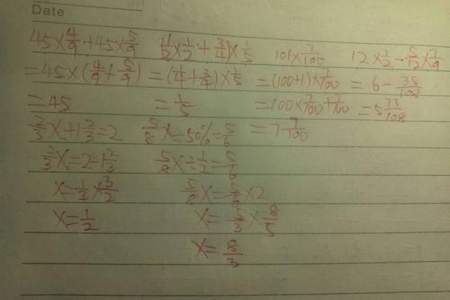 Date
45×4/9+45×5/9 (1/2×1/2+3/4)×1/5 101×7/100 12×1/2-5/12×7/9
=45×(4/9+5/9) =(1/4+3/4)×1/5 =(100+1)×7/100 =6-35/108
=45 =1/5 =100×7/100+7/100 =5 73/108
2/3X+1 2/3=2 5/8X÷50%=5/6 =7 7/100
2/3X=2-1 2/3 5/8X÷1/2=5/6
X=1/3×3/2 5/8X= ×2
X=1/2 X=5/3×8/5
X=8/3